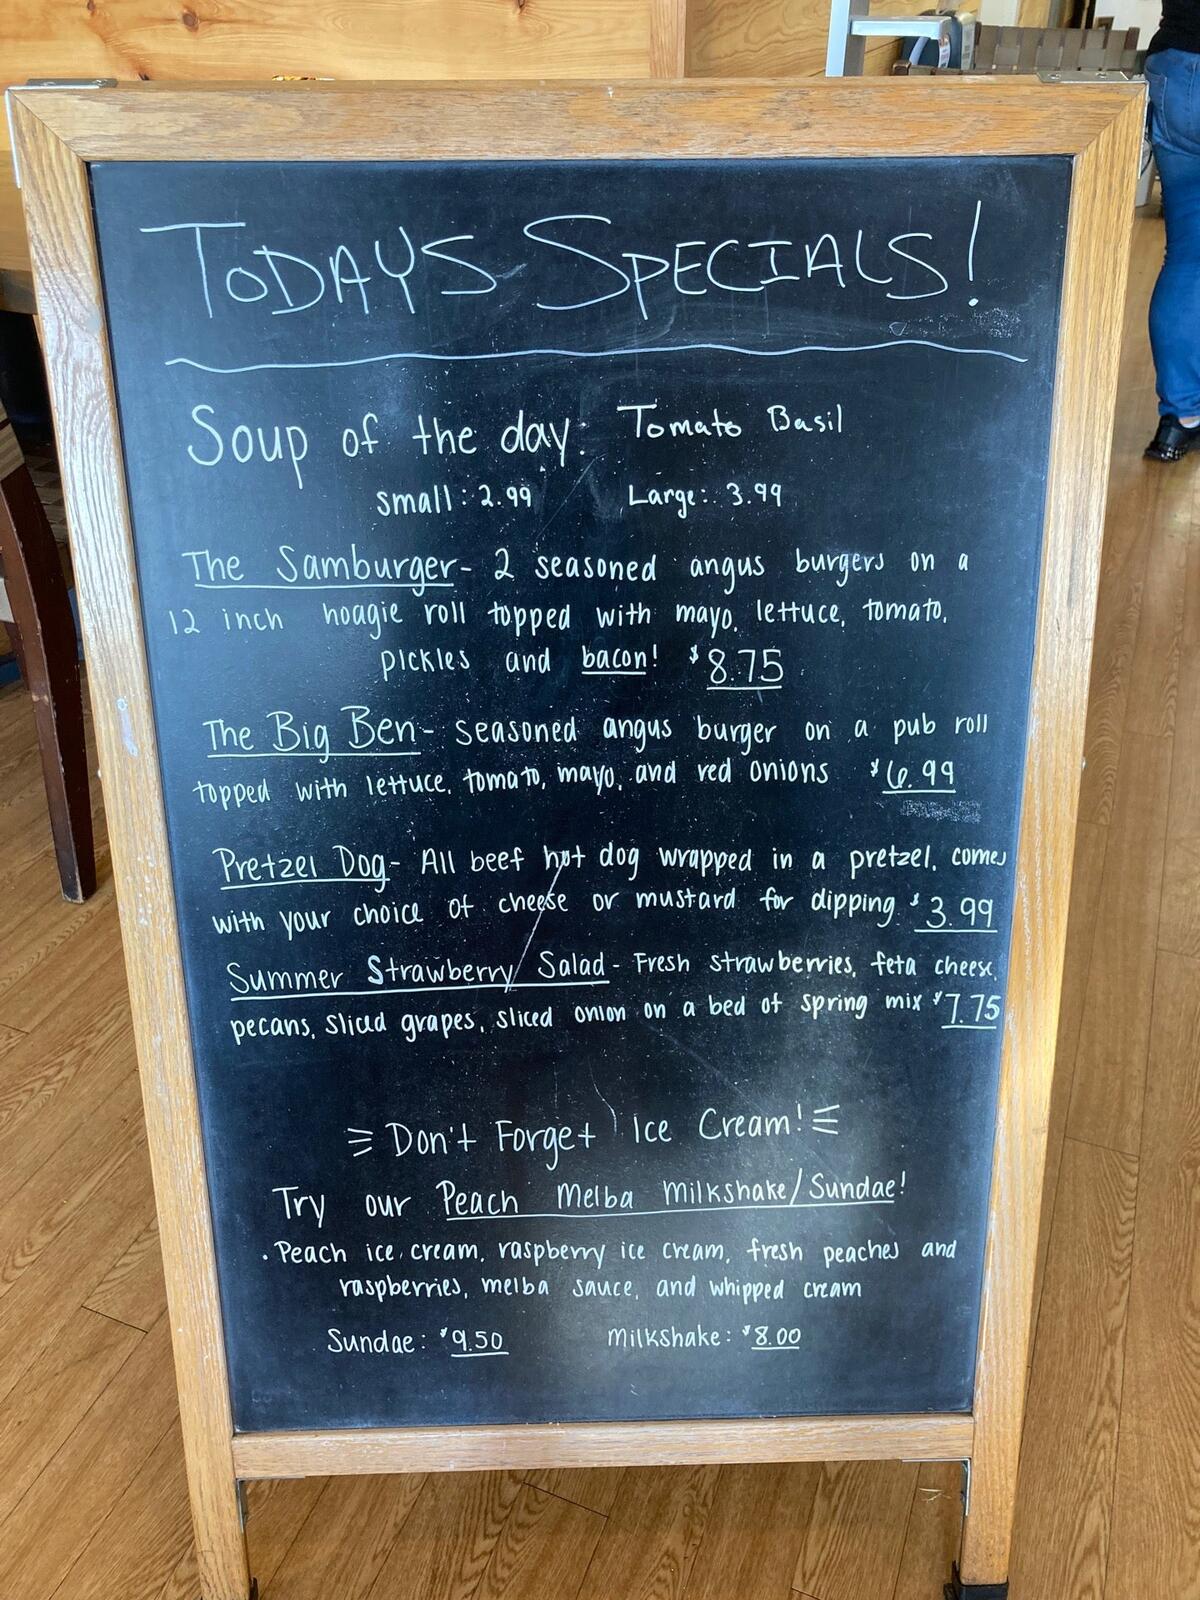 TODAYS SPECIALS!
Soup of the day: Tomato Basil
small: 2.99 Large: 3.99
The Samburger- 2 seasoned angus burgers on a
12 inch hoagie roll topped with mayo, lettuce, tomato,
pickles and bacon! $8.75
The Big Ben- seasoned angus burger on a pub roll
topped with lettuce, tomato, mayo, and red onions $6.99
Pretzel Dog- All beef hot dog wrapped in a pretzel, comes
with your choice of cheese or mustard for dipping $3.99
Summer Strawberry Salad- Fresh strawberries, feta cheese,
pecans, sliced grapes, sliced onion on a bed of spring mix $7.75
Don't Forget Ice Cream!
Try our Peach Melba Milkshake/Sundae!
• Peach ice cream, raspberry ice cream, fresh peaches and
raspberries, melba sauce, and whipped cream
Sundae: $9.50 Milkshake: $8.00